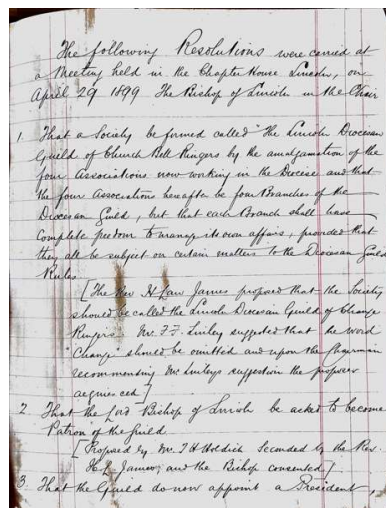 The following Resolutions were carried at
a Meeting held in the Chapter House Lincoln, on
April 29 1899 The Bishop of Lincoln in the Chair
1. That a Society be formed called "The Lincoln Diocesan
Guild of Church Bell Ringers by the amalgamation of the
four Associations now working in the Diocese and that
the four Associations hereafter be four Branches of the
Diocesan Guild, but that each Branch shall have
complete freedom to manage its own affairs, provided that
they all be subject on certain matters to the Diocesan Guild
Rules
[The Rev H Law James proposed that the Society
should be called the Lincoln Diocesan Guild of Change
Ringers. Mr. F. F. Linley suggested that the word
"Change" should be omitted and upon the Chairman
recommending Mr Linleys suggestion the proposer
acquiesced]
2 That the Lord Bishop of Lincoln be asked to become
Patron of the Guild.
[Proposed by Mr. T H Holdich Seconded by the Rev.
H. L. James, and the Bishop consented]
3. That the Guild do now appoint a President,